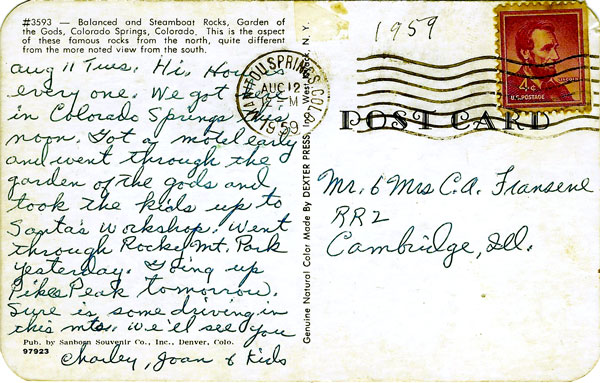 #3593 — Balanced and Steamboat Rocks, Garden of
the Gods, Colorado Springs, Colorado. This is the aspect
of these famous rocks from the north, quite different
from the more noted view from the south.
Aug 11 Tues. Hi, How's
every one. We got
in Colorado Springs this
noon. Got a motel early
and went through the
garden of the gods and
took the kids up to
Santa's Workshop. Went
through Rocky Mt. Park
yesterday. Going up
Pikes Peak tomorrow.
Sure is some driving in
this mts. we'll see you
Pub. by Sanborn Souvenir Co., Inc., Denver, Colo.
97923
Charley, Joan & Kids
Genuine Natural Color Made By DEXTER PRESS, Inc. West N. Y.
MANITOU SPRINGS, COLO.
AUG 12
12 M
1959
1959
4¢
U.S. POSTAGE
LINCOLN
POST CARD
Mr. & Mrs C.A. Fransene
RR 2
Cambridge, Ill.